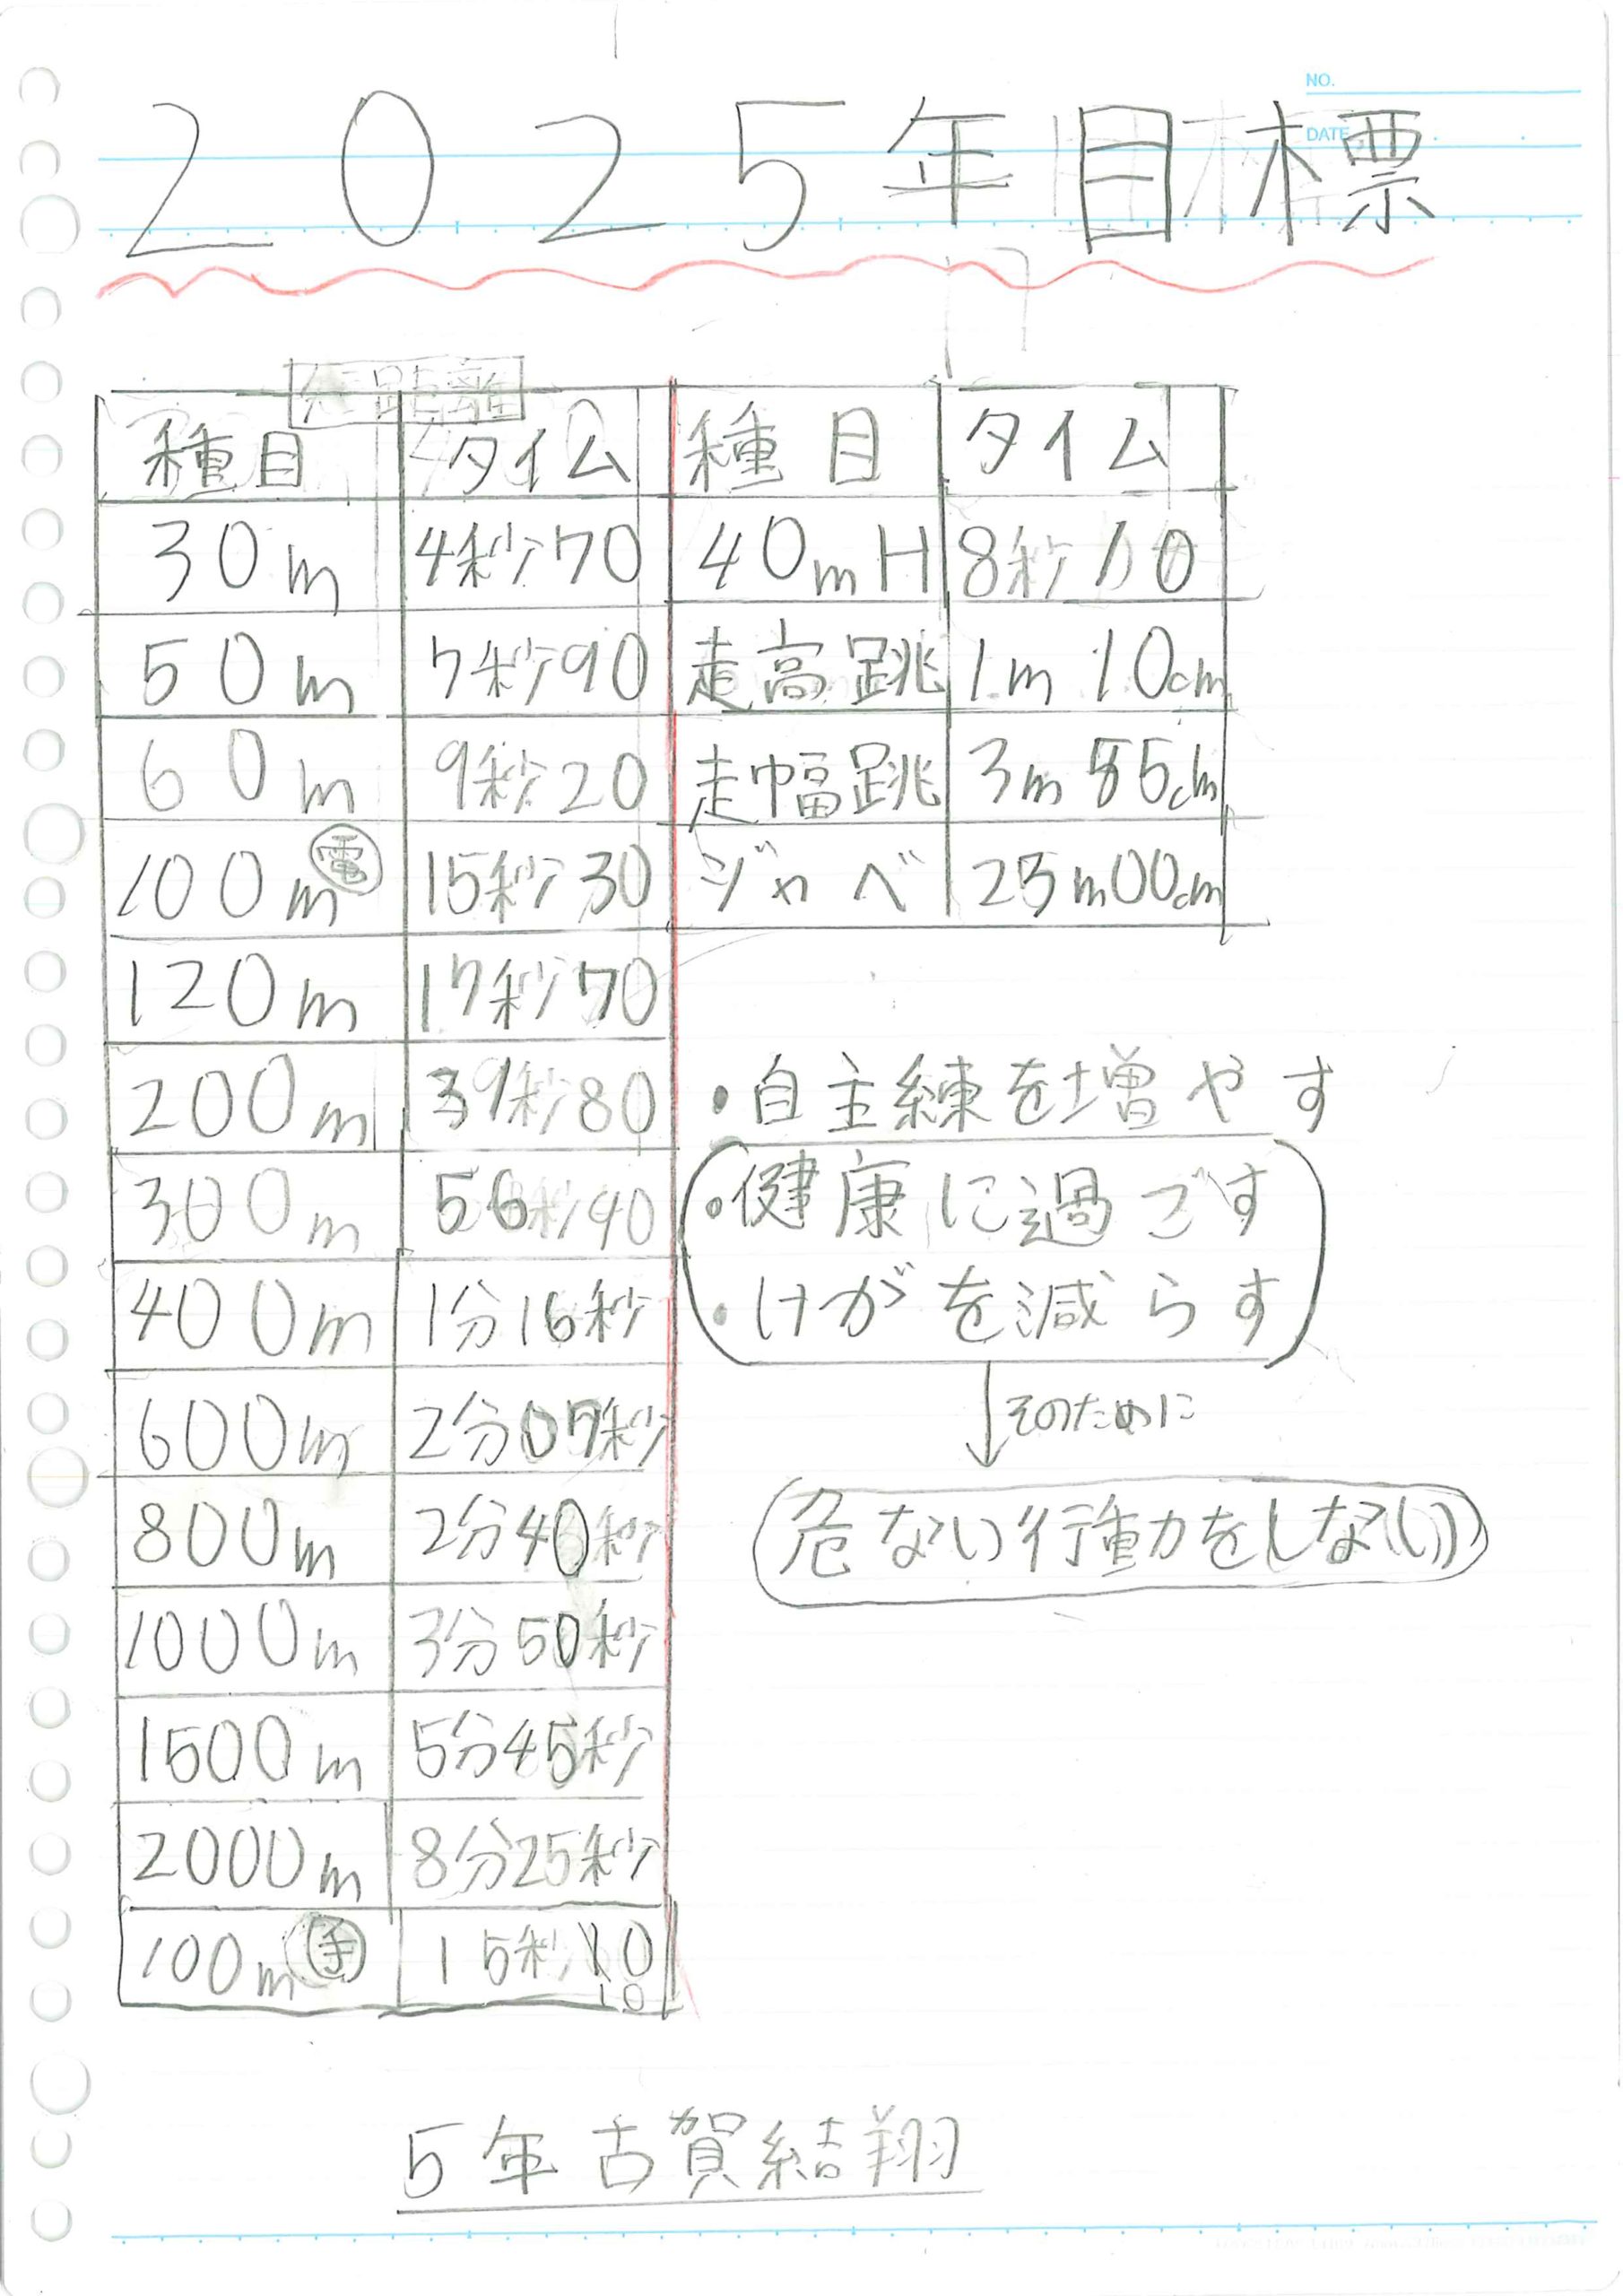 NO.
DATE
2025年目標
短距離
種目 タイム 種目 タイム
30m 4秒70 40mH 8秒10
50m 7秒90 走高跳 1m10cm
60m 9秒20 走幅跳 3m55cm
100m電 15秒30 ジャベ 25m00cm
120m 17秒70
200m 39秒80
300m 56秒40
400m 1分16秒
600m 2分07秒
800m 2分40秒
1000m 3分50秒
1500m 5分45秒
2000m 8分25秒
100m手 15秒10
10
・自主練を増やす
・健康に過ごす
・けがを減らす
そのために
危ない行動をしない
5年古賀結翔